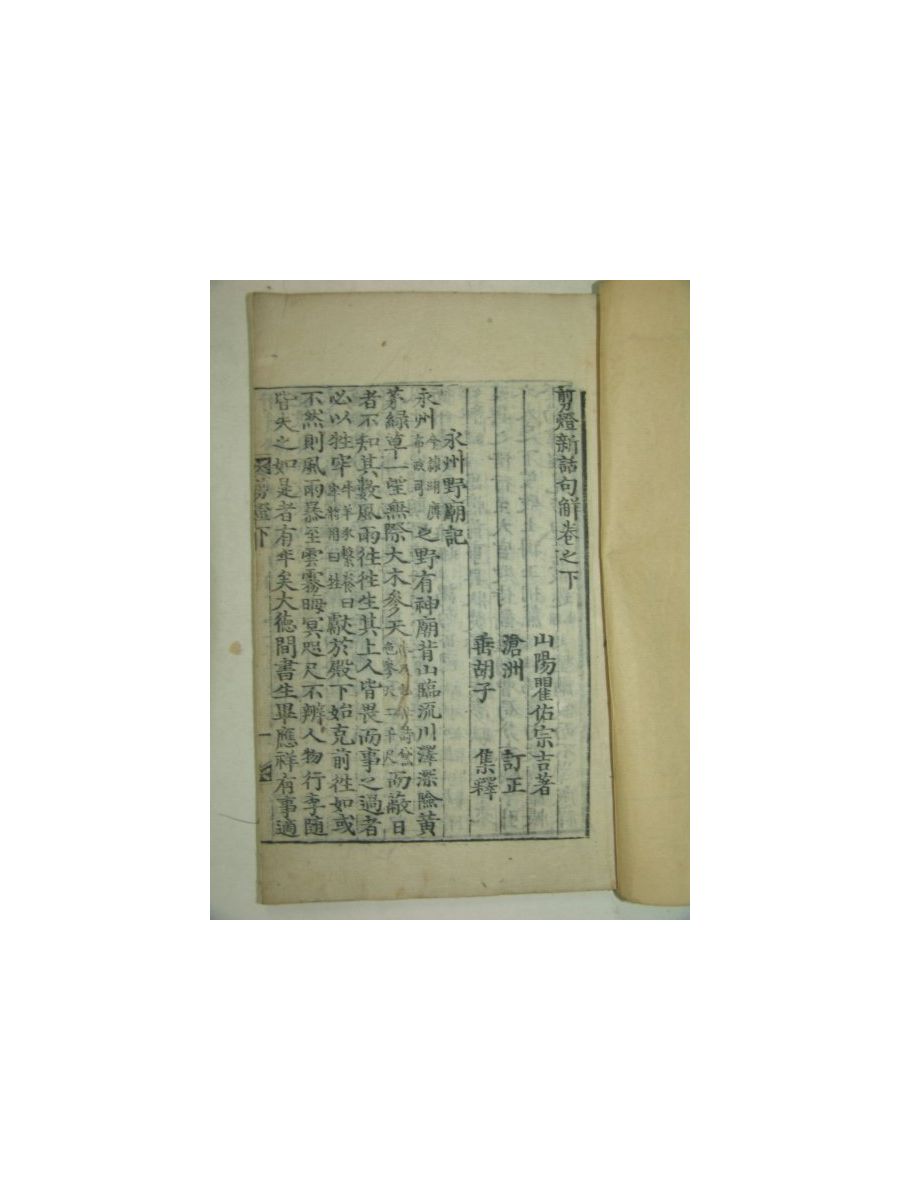 剪燈新話句解卷之下
山陽瞿佑宗吉著
滄洲 訂正
垂胡子 集釋
永州野廟記
永州今隷湖廣布政司之野有神廟背山臨流川澤深險黃
茅綠草一望無際大木參天而蔽日
者不知其數風雨往往生其上人皆畏而事之過者
必以牲牢牛羊豕繫養曰牢將用曰牲獻於殿下始克前往如或
不然則風雨暴至雲霧晦冥咫尺不辨人物行李隨
皆失之如是者有年矣大德間書生畢應祥有事適
剪燈下 一